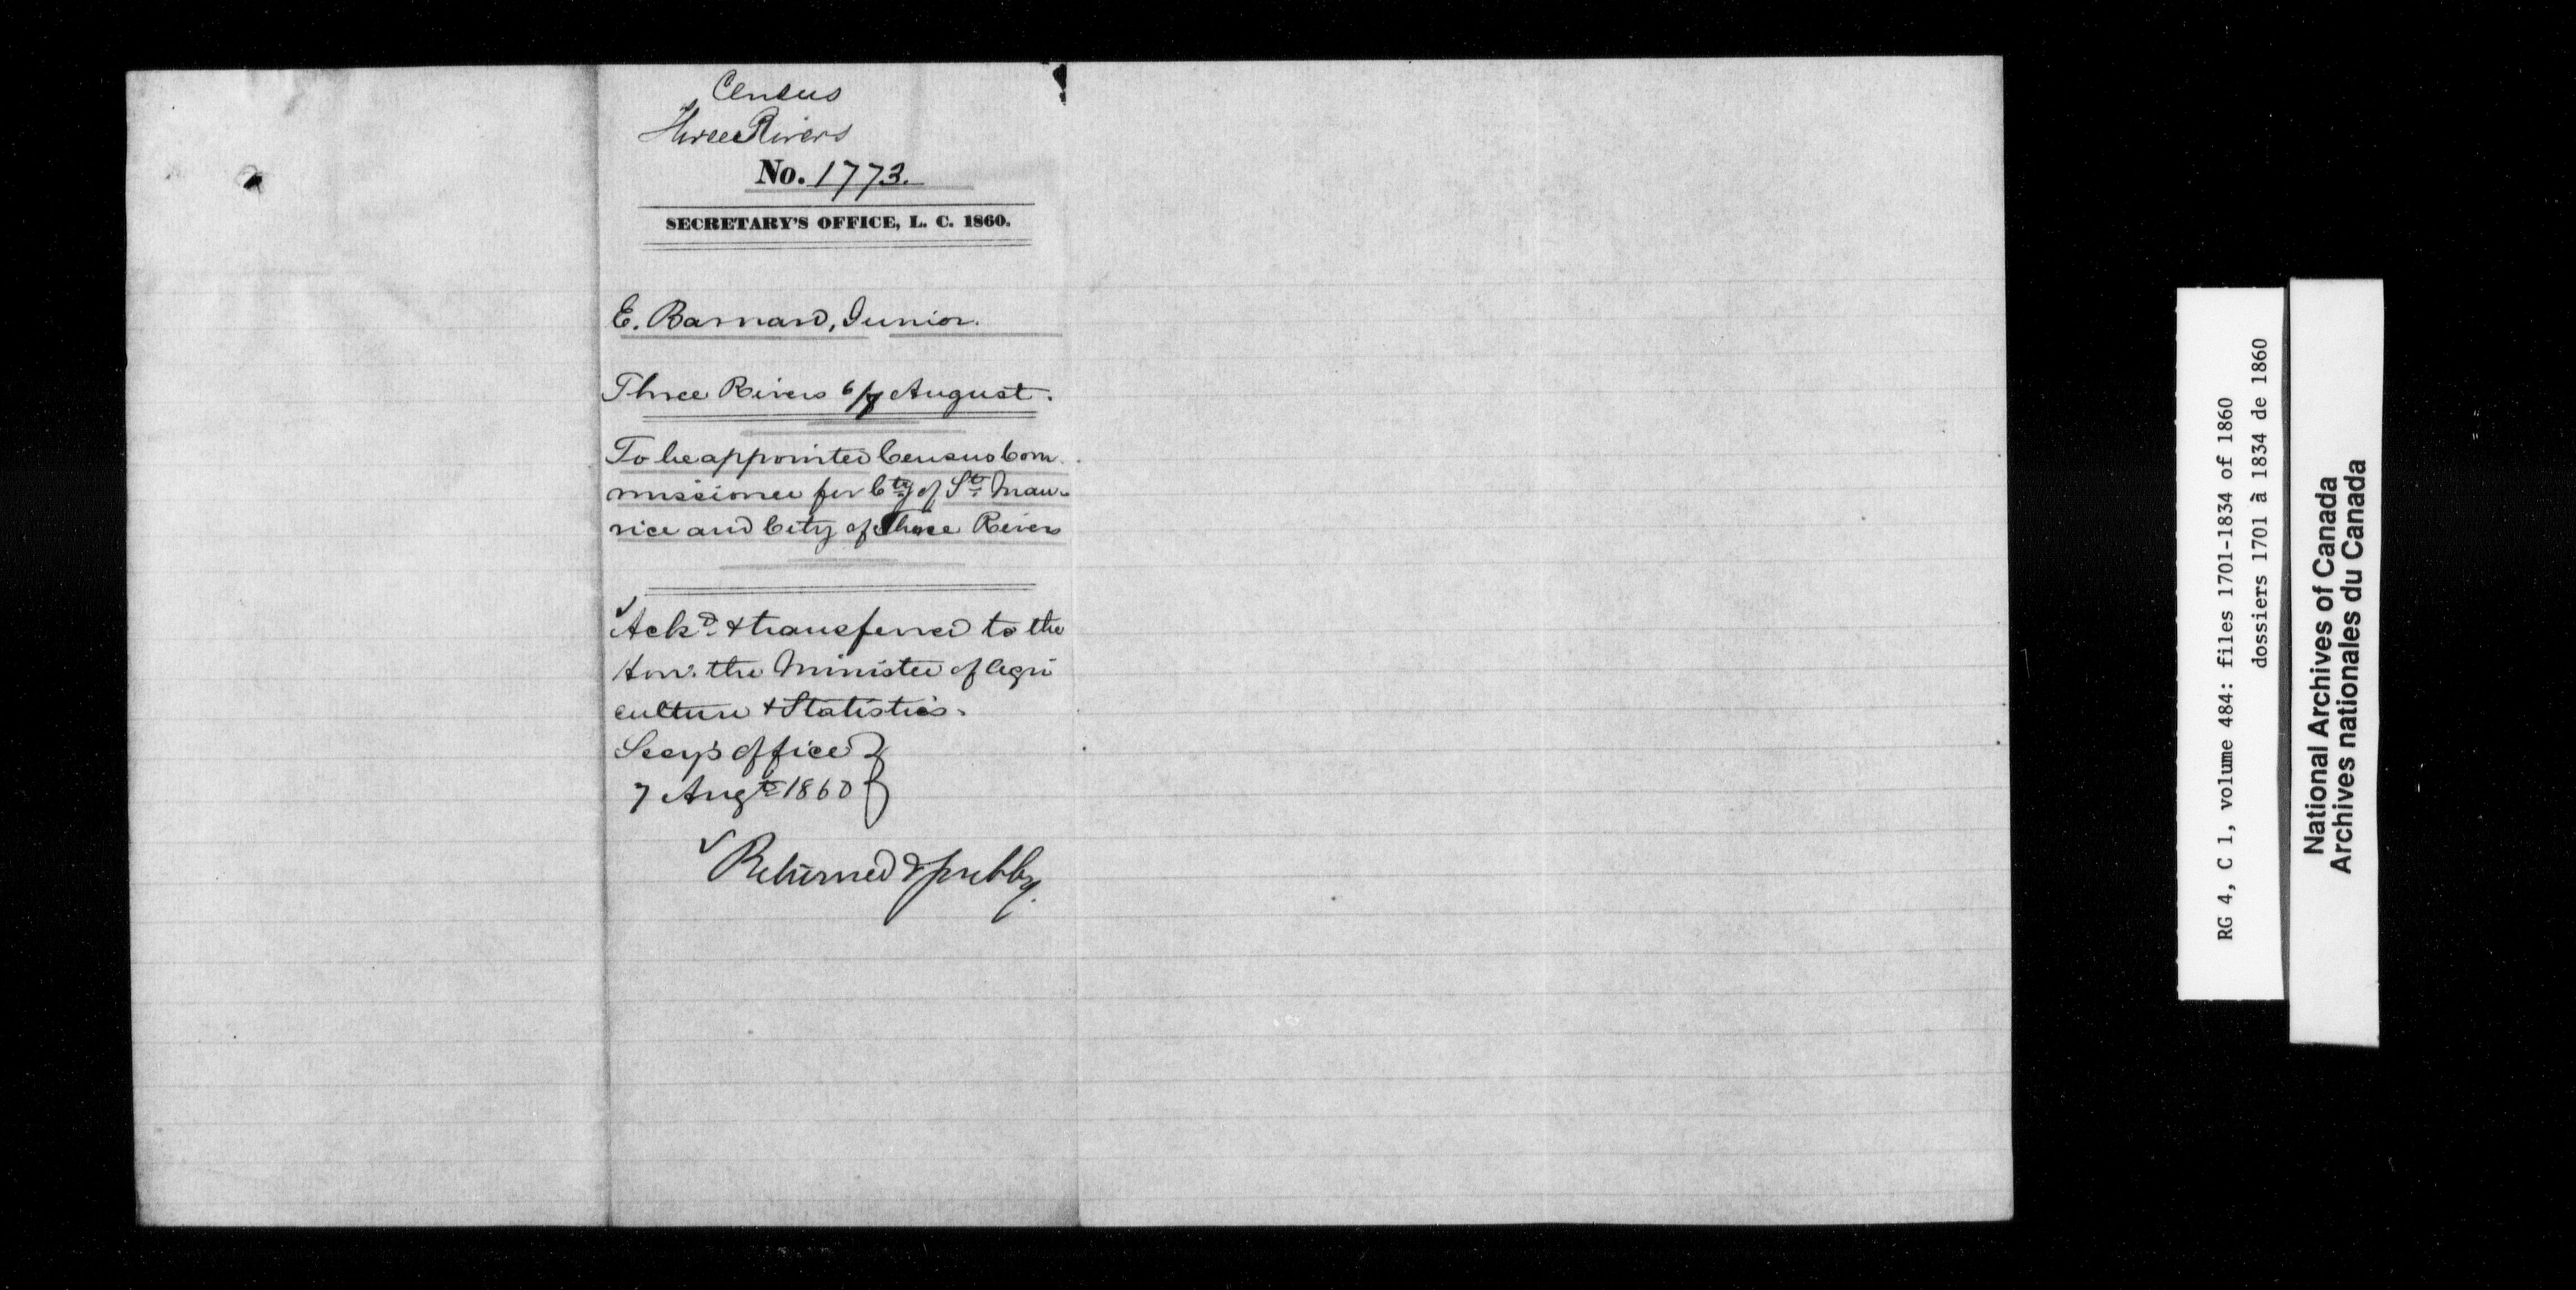 Census
Three Rivers
No. 1773.
SECRETARY'S OFFICE, L. C. 1860.
E. Barnard, Junior.
Three Rivers 6/7 August.
To be appointed Census Com
missioner for Cty of St. Mau-
rice and City of Three Rivers
Ackd. & transferred to the
Hon. the Minister of Agri
culture & Statistics.
Secy's Office
7 Augt 1860
Returned &
RG 4, C 1, volume 484: files 1701-1834 of 1860
dossiers 1701 à 1834 de 1860
National Archives of Canada
Archives nationales du Canada